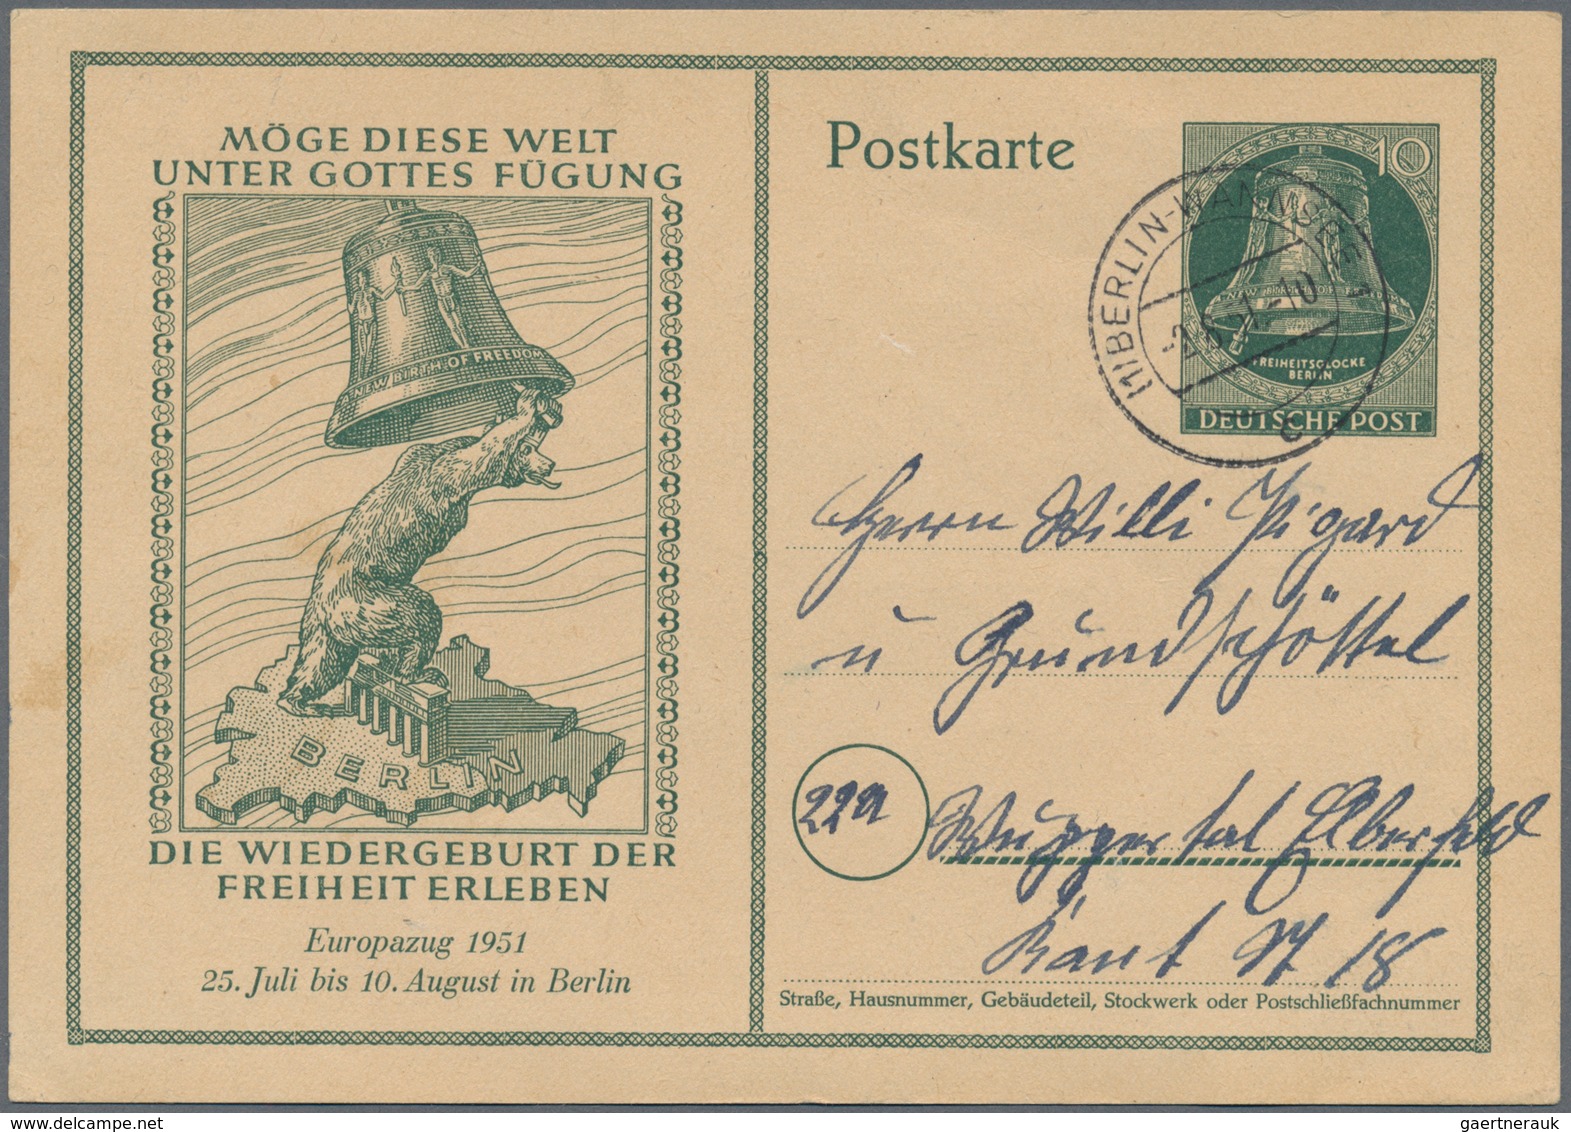 MÖGE DIESE WELT
UNTER GOTTES FÜGUNG
NEW BIRTH OF FREEDOM
BERLIN
DIE WIEDERGEBURT DER
FREIHEIT ERLEBEN
Europazug 1951
25. Juli bis 10. August in Berlin
Postkarte
10
NEW BIRTH OF
FREIHEITSGLOCKE
BERLIN
DEUTSCHE POST
(1) BERLIN-WANNSEE 1
-2.8.51.-10
c
Herrn Willi Pigard
u Grundschöttel
22a
Wuppertal Elberfeld
Kant St 18
Straße, Hausnummer, Gebäudeteil, Stockwerk oder Postschließfachnummer
www.delcampe.net
gaertnerauk